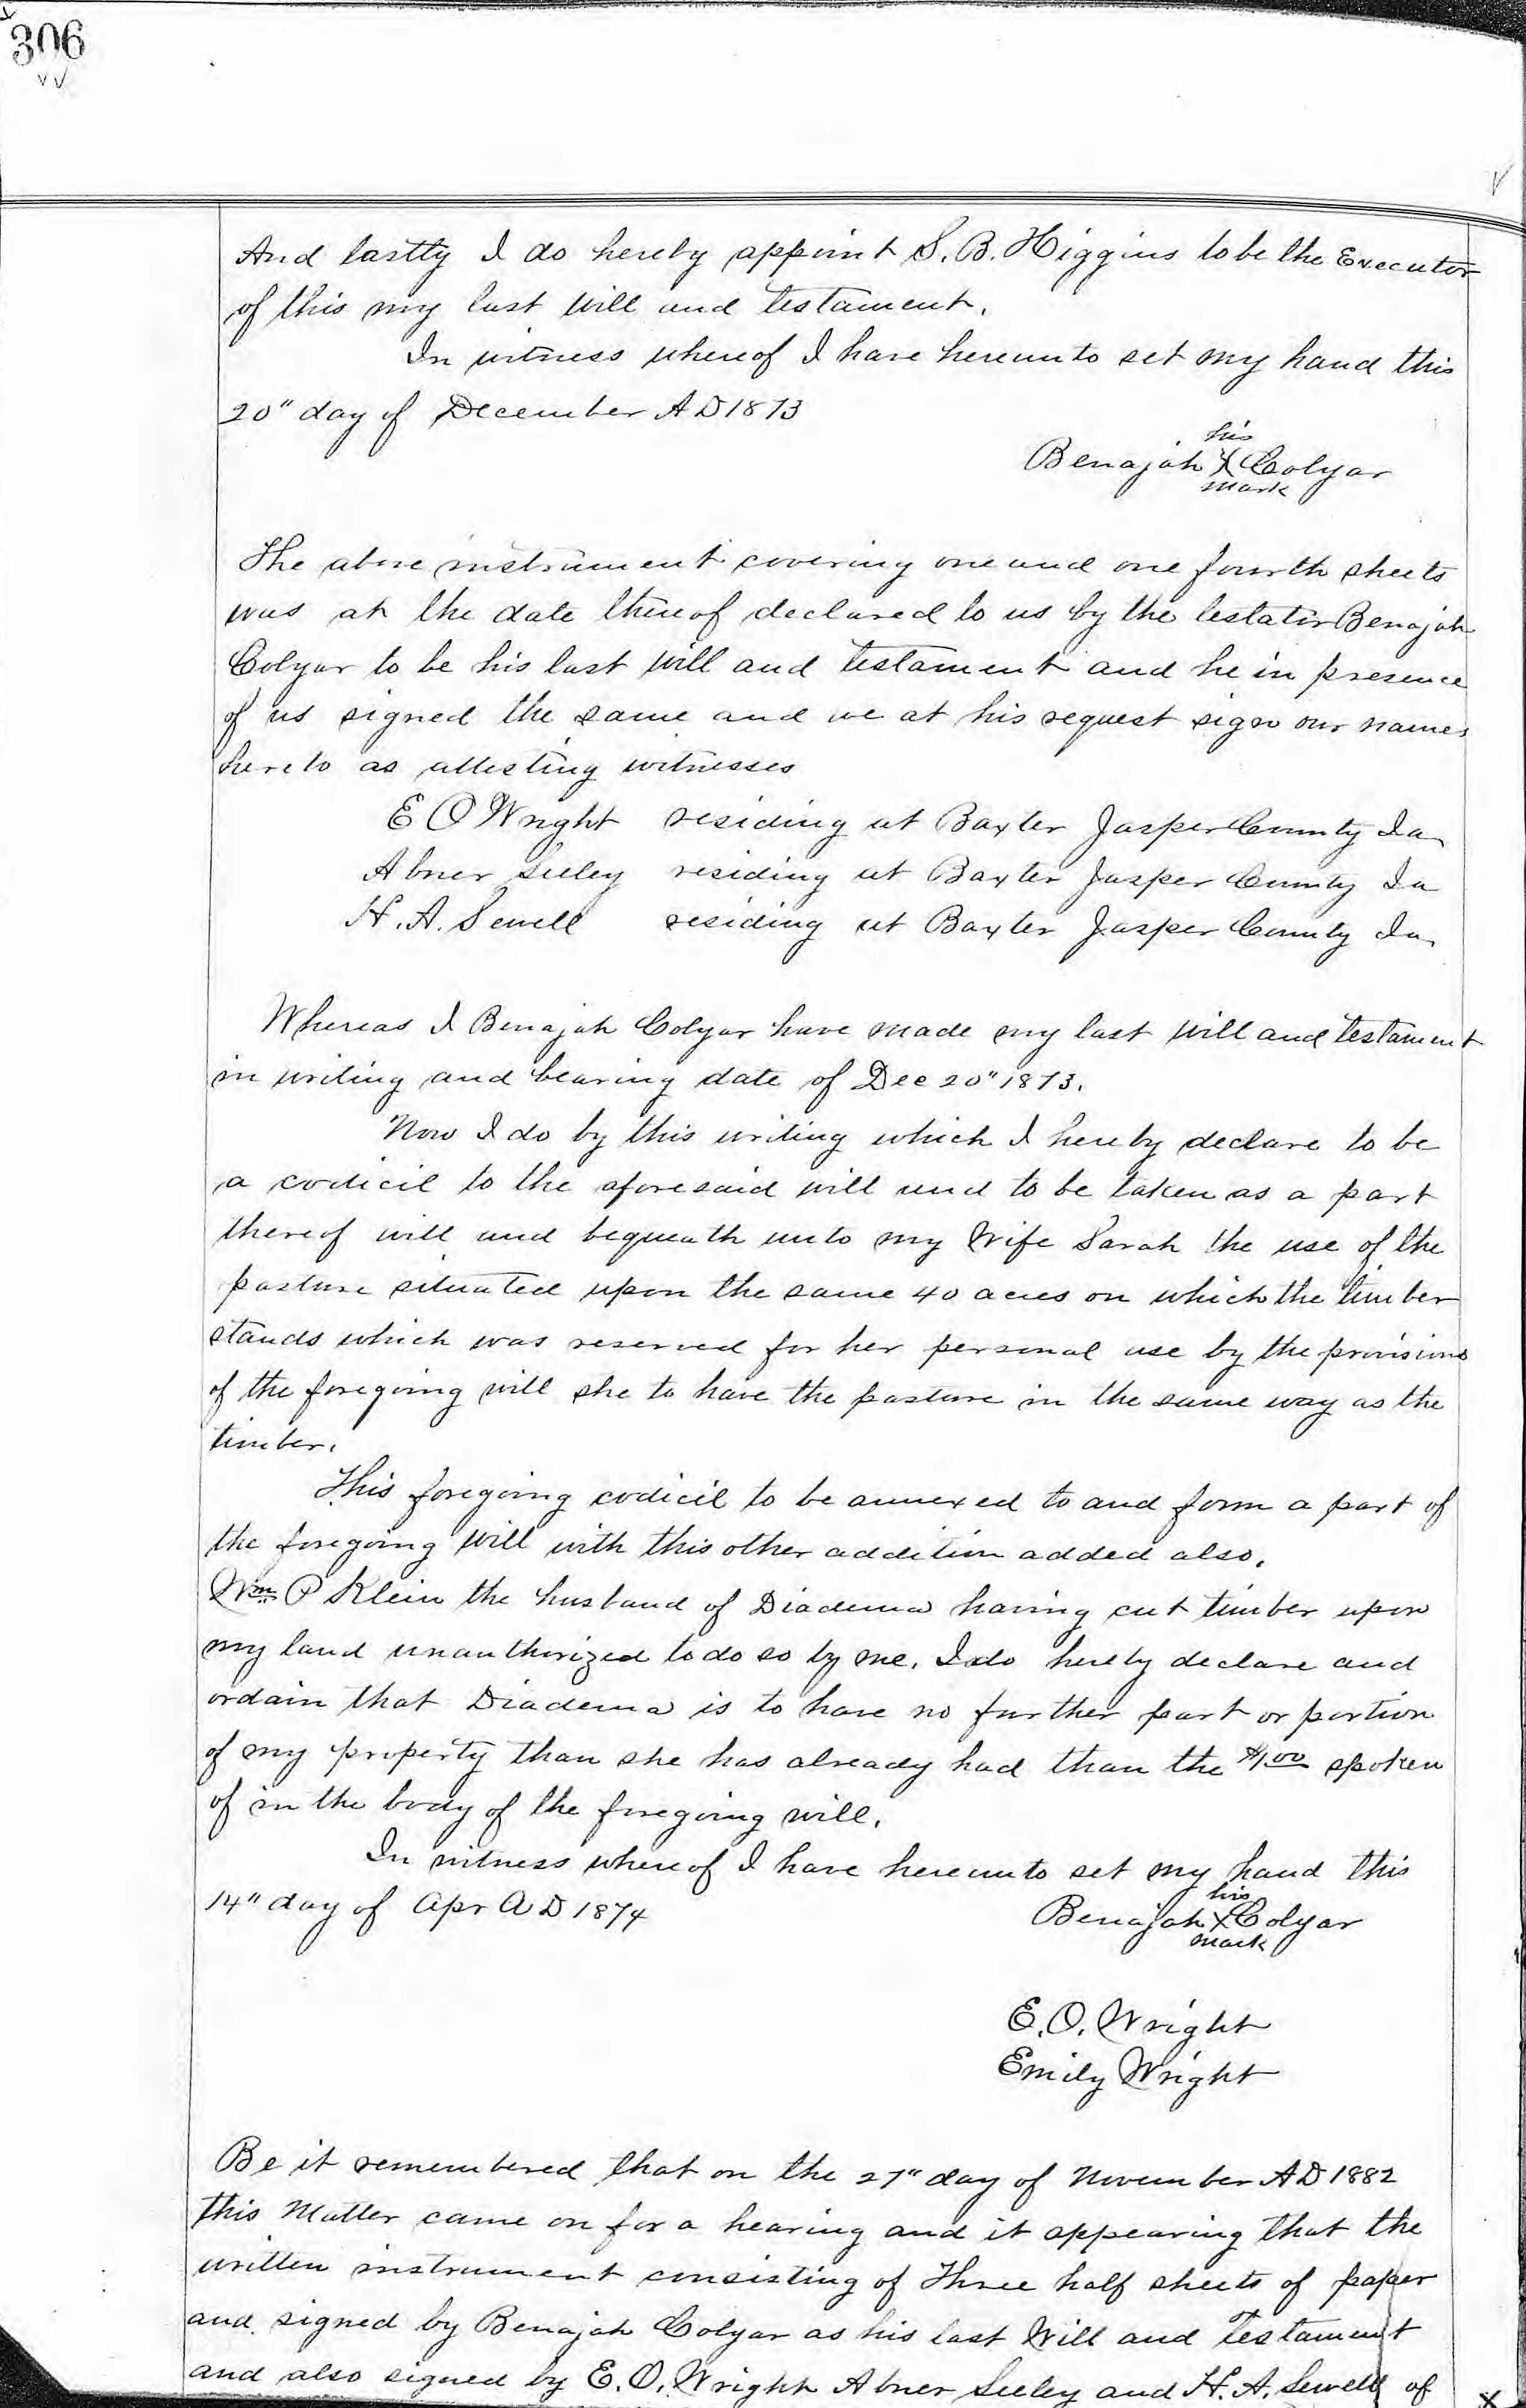 306
And lastly I do hereby appoint S. B. Higgins to be the Executor
of this my last Will and testament.
In witness whereof I have hereunto set my hand this
20" day of December A D 1873
his
Benajah X Colyar
mark
The above instrument covering one and one fourth sheets
was at the date thereof declared to us by the testator Benajah
Colyar to be his last Will and testament and he in presence
of us signed the same and we at his request sign our names
hereto as attesting witnesses
E O Wright residing at Baxter Jasper County Ia
Abner Seeley residing at Baxter Jasper County Ia
H. A. Sewell residing at Baxter Jasper County Ia
Whereas I Benajah Colyar have made my last Will and testament
in writing and bearing date of Dec 20" 1873.
Now I do by this writing which I hereby declare to be
a codicil to the aforesaid will and to be taken as a part
thereof will and bequeath unto my Wife Sarah the use of the
pasture situated upon the same 40 acres on which the timber
stands which was reserved for her personal use by the provisions
of the foregoing will she to have the pasture in the same way as the
timber.
This foregoing codicil to be annexed to and form a part of
the foregoing Will with this other addition added also.
Wm P Klein the husband of Diadema having cut timber upon
my land unauthorized to do so by me, I do hereby declare and
ordain that Diadema is to have no further part or portion
of my property than she has already had than the $1.00 spoken
of in the body of the foregoing will.
In witness whereof I have hereunto set my hand this
14" day of Apr A D 1874
his
Benajah X Colyar
mark
E. O. Wright
Emily Wright
Be it remembered that on the 27" day of November A D 1882
this Matter came on for a hearing and it appearing that the
written instrument consisting of Three half sheets of paper
and signed by Benajah Colyar as his last Will and Testament
and also signed by E. O. Wright Abner Seeley and H. A. Sewell of